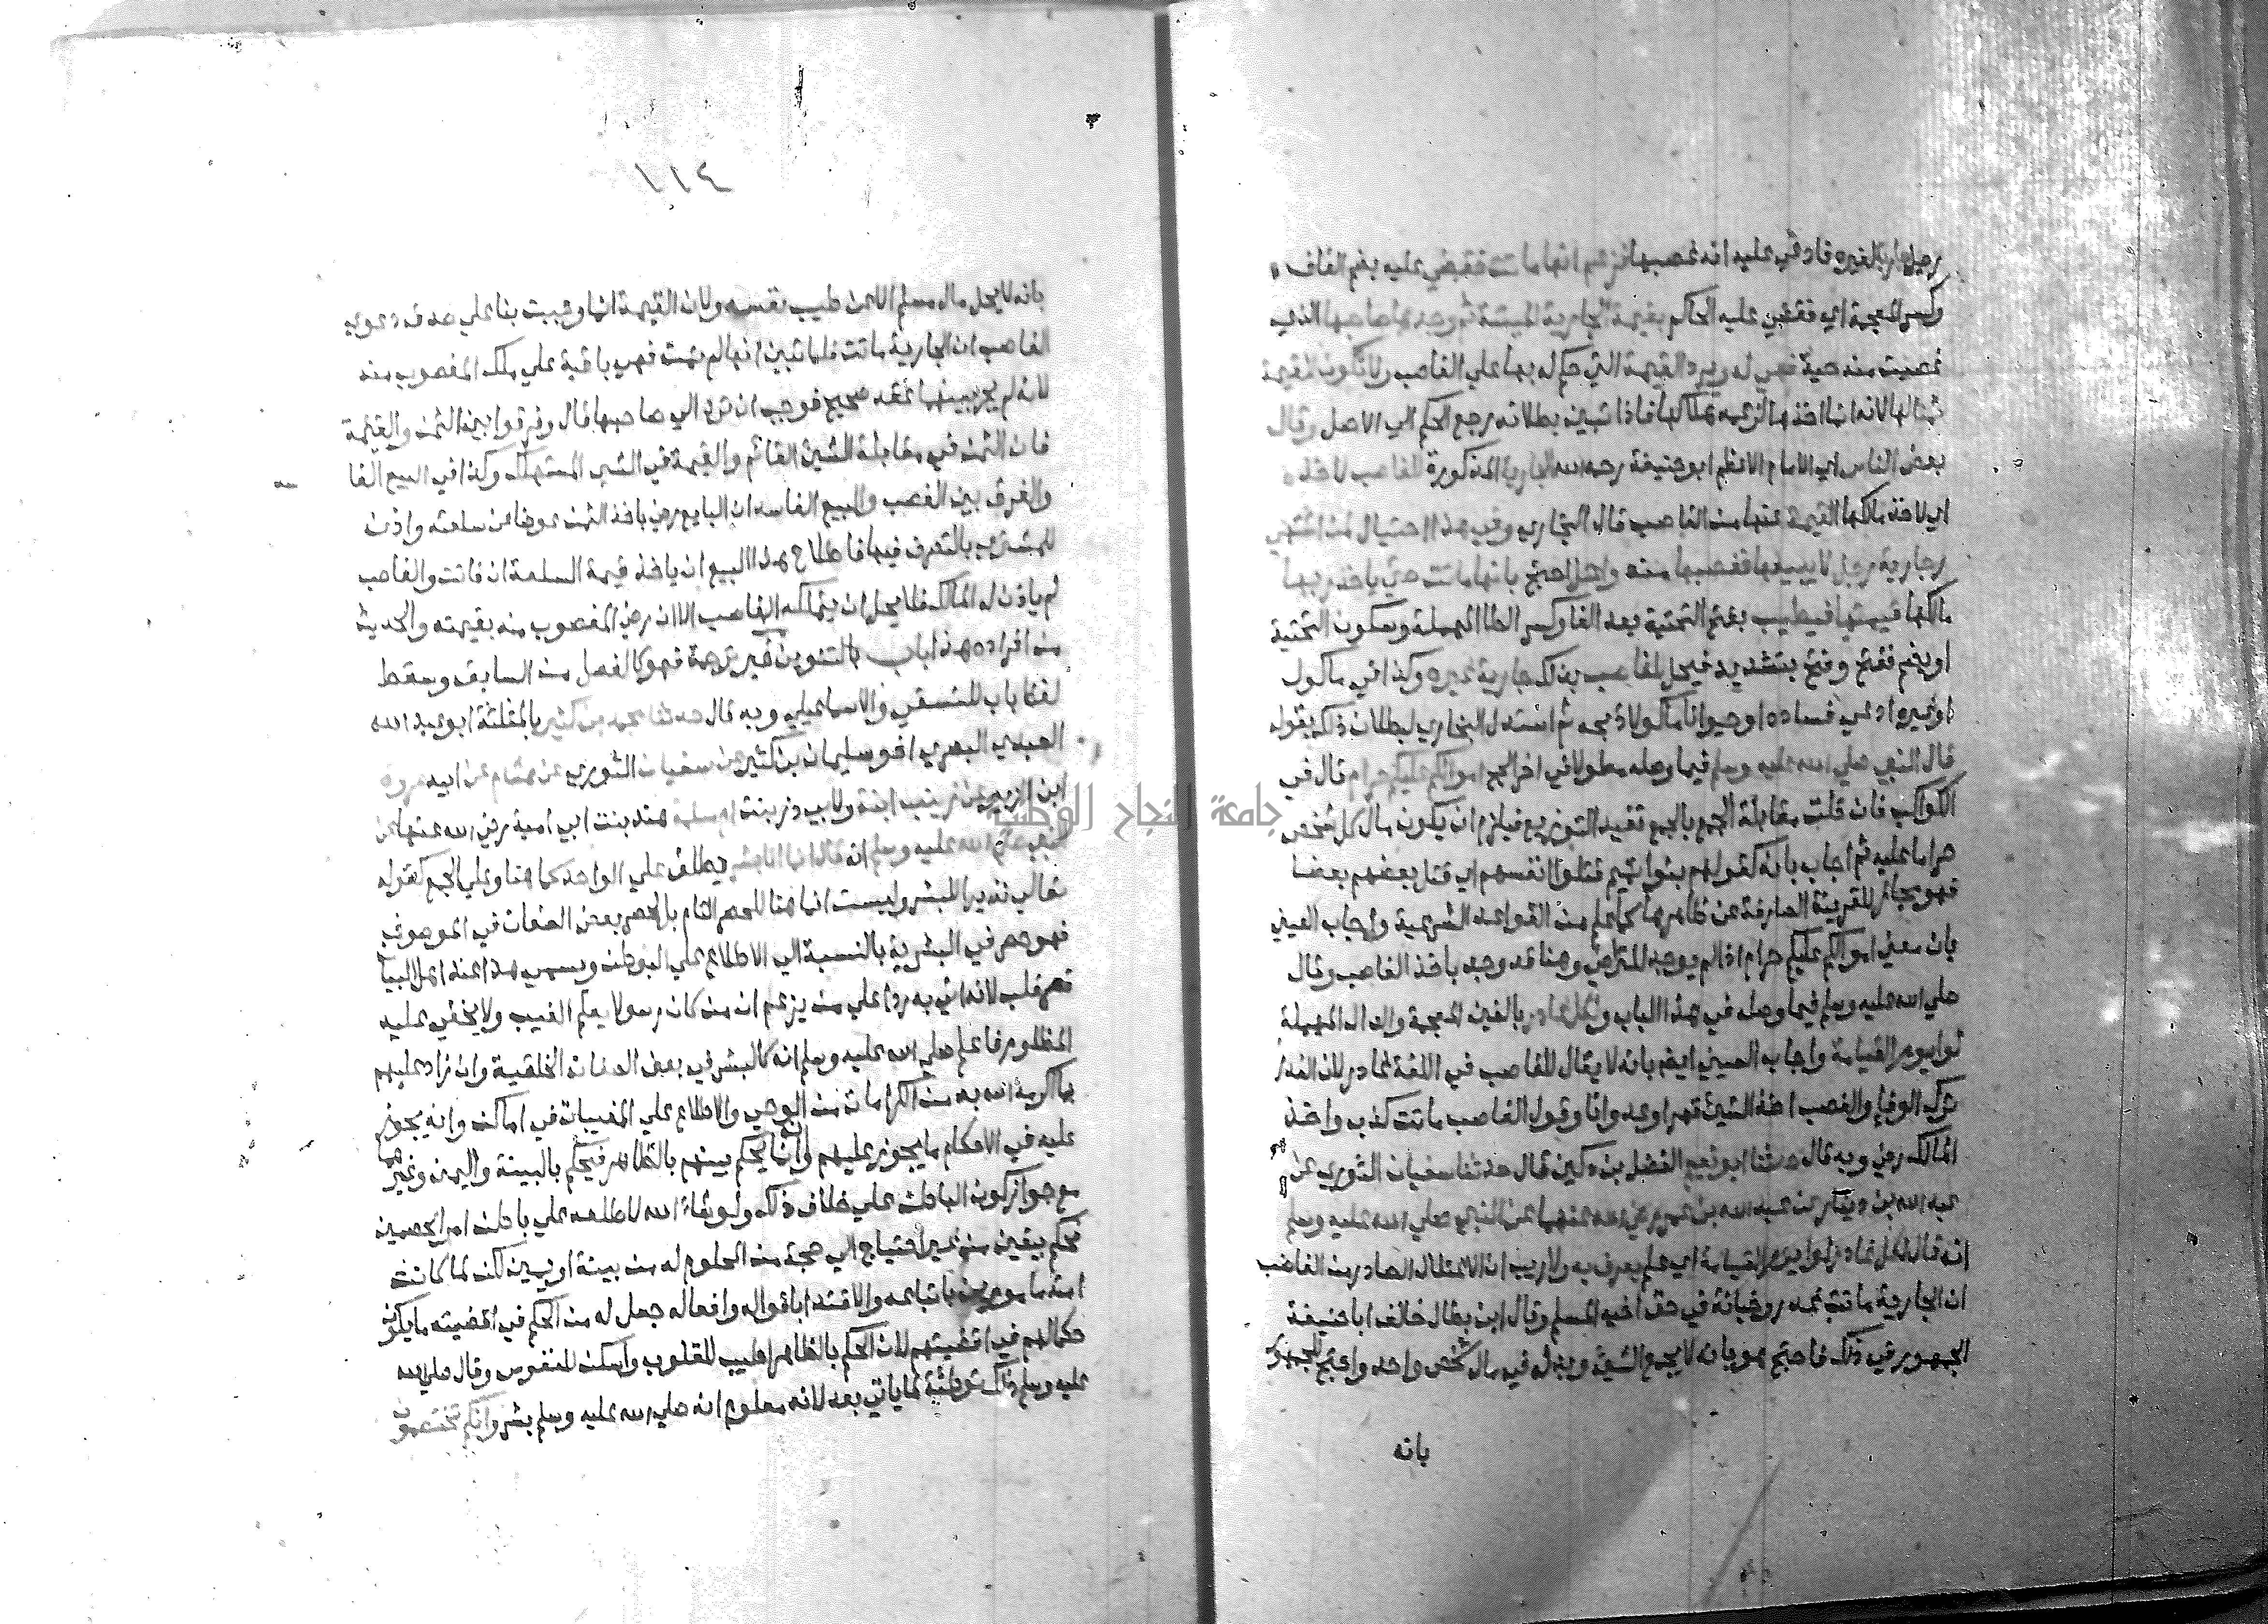 رجل جارية لغيره فادعي عليه انه غصبها فزعم انها ماتت فقضي عليه بضم القاف
وكسر المعجمة اي فقضي عليه الحاكم بقيمة الجارية الميتة ثم وجدها صاحبها الذي
غصبت منه حية فهي له ويرد القيمة التي حكم له بها علي الغاصب ولا تكون القيمة
ثمنا لها لانه انما اخذها لزعمه هلاكها فاذا تبين بطلانه رجع الحكم الي الاصل وقال
بعض الناس اي الامام الاعظم ابو حنيفة رحمه الله الجارية المذكورة للغاصب لاخذه
اي لاخذ مالكها القيمة عنها من الغاصب قال البخاري وفي هذا احتيال لمن اشتهي
جارية رجل لا يبيعها فغصبها منه واعتل احتج بانها ماتت حتي ياخذ ربها
مالكها قيمتها فيطيب بفتح التحتية بعد الفا وكسر الطا المهملة وسكون التحتية
او بضم ففتح وفتح بتشديد فيحل للغاصب بذلك جارية غيره وكذا في ماكول
او غيره ادعي فساده او حيوانا ماكولا ذبحه ثم استدل البخاري لبطلان ذلك بقوله
قال النبي صلي الله عليه وسلم فيما وصله مطولا في اخر الحج اموالكم عليكم حرام قال في
الكواكب فان قلت مقابلة الجمع بالجمع تفيد التوزيع فيلزم ان يكون مال كل شخص
حراما عليه ثم اجاب بانه كقولهم بنوا تميم قتلوا انفسهم اي قتل بعضهم بعضا
فهو مجاز للقرينة الصارفة عن ظاهرها كما علم من القواعد الشرعية واجاب العيني
بان معني اموالكم عليكم حرام اذا لم يوجد التراضي وهنا قد وجد باخذ الغاصب وقال
صلي الله عليه وسلم فيما وصله في هذا الباب ولكل غادر بالغين المعجمة والدال المهملة
لوا يوم القيامة واجاب العيني ايضم بانه لا يقال للغاصب في اللغة غادر لان الغدر
ترك الوفا والغصب اخذ الشيئ قهرا وعدوانا وقول الغاصب ماتت كذب واخذ
المالك رضي وبه قال حدثنا ابو نعيم الفضل بن دكين قال حدثنا سفيان الثوري عن
عبد الله بن دينار عن عبد الله بن عمر رضي الله عنهما عن النبي صلي الله عليه وسلم
انه قال لكل غادر لوا يوم القيامة اي علم يعرف به ولا ريب ان الاعتلال الصادر من الغاصب
ان الجارية ماتت غدر وخيانة في حق اخيه المسلم وقال ابن بطال خالف ابا حنيفة
الجمهور في ذلك فاحتج هو بانه لا يجمع الشيئ وبدله في مال شخص واحد واحتج الجمهور
بانه
١١٤
بانه لا يحل مال مسلم الا عن طيب نفسه ولان القيمة انما وجبت بنا علي صدق دعوي
الغاصب ان الجارية ماتت فلما تبين انها لم تمت فهي باقية علي ملك المغصوب منه
لانه لم يجر بينهما عقد صحيح فوجب ان ترد الي صاحبها قال وفرقوا بين الثمن والقيمة
فان الثمن في مقابلة الشيئ القائم والقيمة في الشيئ المستهلك وكذا في البيع الفا
سد
والفرق بين الغصب والبيع الفاسد ان البايع رضي باخذ الثمن عوضا عن سلعته واذن
للمشتري بالتصرف فيها فاصلاح هذا البيع ان ياخذ قيمة السلعة ان فاتت والغاصب
لم ياذن له المالك فلا يحل ان يتملكه الغاصب الا ان رضي المغصوب منه بقيمته والحديث
من افراده هذا باب بالتنوين بغير ترجمة فهو كالفصل من السابق وسقط
لفظ باب للنسفي والاسماعيلي وبه قال حدثنا محمد بن كثير بالمثلثة ابو عبد الله
العبدي البصري اخو سليمان بن كثير عن سفيان الثوري عن هشام عن ابيه عروة
ابن الزبير عن زينب ابنة ولابي ذر بنت ام سلمة هند بنت ابي امية رضي الله عنها عن
النبي صلي الله عليه وسلم انه قال انما انا بشر يطلق علي الواحد كما هنا وعلي الجمع كقوله
تعالي نذيرا للبشر وليست انما هنا للحصر التام بل لحصر بعض الصفات في الموصوف
فهو حصر في البشرية بالنسبة الي الاطلاع علي البواطن ويسمي هذا عند اهل البيان
قصر قلب لانه اتي به ردا علي من يزعم ان من كان رسولا يعلم الغيب ولا يخفي عليه
المظلوم فاعلم صلي الله عليه وسلم انه كالبشر في بعض الصفات الخلقية وان زاد عليهم
بما اكرمه الله به من الكرامات من الوحي والاطلاع علي المغيبات في اماكن وانه يجوز
عليه في الاحكام ما يجوز عليهم وانه انما يحكم بينهم بالظاهر فيحكم بالبينة واليمين وغيرهما
مع جواز كون الباطن علي خلاف ذلك ولو شاء الله لاطلعه علي باطن امر الخصمين
فحكم بيقين من غير احتياج الي حجة من المحكوم له من بينة او يمين لكن لما كانت
امته مامورين باتباعه والاقتدا باقواله وافعاله جعل له من الحكم في اقضيته ما يكون
حكما لهم في اقضيتهم لان الحكم بالظاهر اطيب للقلوب واسكن للنفوس وقال صلي الله
عليه وسلم ذلك توطئة لما ياتي بعد لانه معلوم انه صلي الله عليه وسلم بشر وانكم تختصمون
جامعة النجاح الوطنية